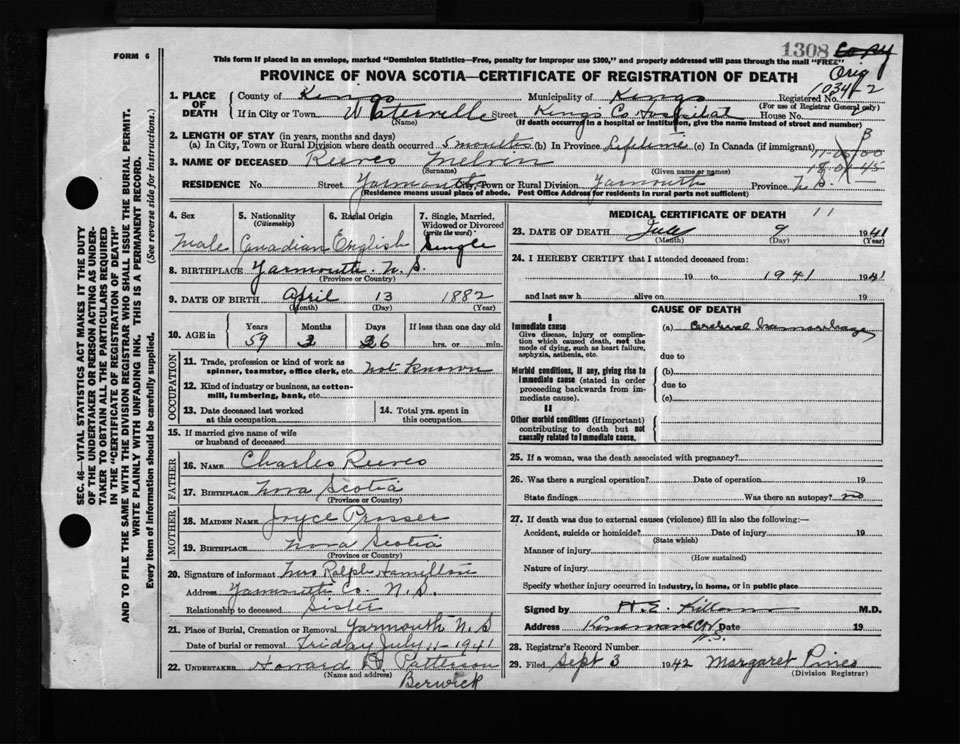 1308 Copy
Orig
FORM 6
This form if placed in an envelope, marked "Dominion Statistics—Free, penalty for improper use $300," and properly addressed will pass through the mail "FREE"
PROVINCE OF NOVA SCOTIA—CERTIFICATE OF REGISTRATION OF DEATH
1. PLACE OF DEATH County of Kings Municipality of Kings Registered No.
(For use of Registrar General only)
If in City or Town Waterville Street Kings Co. Hospital House No.
(Name) (If death occurred in a hospital or institution, give the name instead of street and number)
2. LENGTH OF STAY (in years, months and days)
(a) In City, Town or Rural Division where death occurred 5 months (b) In Province Lifetime (c) In Canada (if immigrant)
3. NAME OF DECEASED Reeves Melvin
(Surname) (Given name or names)
RESIDENCE No. Street Yarmouth City, Town or Rural Division Yarmouth Province N.S.
(Residence means usual place of abode. Post Office Address for residents in rural parts not sufficient)
4. Sex 5. Nationality (Citizenship) 6. Racial Origin 7. Single, Married, Widowed or Divorced (write the word)
Male Canadian English Single
8. BIRTHPLACE Yarmouth N.S.
9. DATE OF BIRTH April 13 1882
(Month) (Day) (Year)
10. AGE in Years Months Days If less than one day old
59 2 26 hrs. or min.
OCCUPATION
11. Trade, profession or kind of work as spinner, teamster, office clerk, etc. not known
12. Kind of industry or business, as cotton-mill, lumbering, bank, etc.
13. Date deceased last worked at this occupation 14. Total yrs. spent in this occupation
15. If married give name of wife or husband of deceased
FATHER
16. NAME Charles Reeves
17. BIRTHPLACE Nova Scotia
(Province or Country)
MOTHER
18. MAIDEN NAME Joyce Prosser
19. BIRTHPLACE Nova Scotia
(Province or Country)
20. Signature of informant Mrs Ralph Hamilton
Address Yarmouth Co. N.S.
Relationship to deceased Sister
21. Place of Burial, Cremation or Removal Yarmouth N.S
Date of burial or removal Friday July 11-1941
22. UNDERTAKER Howard D Patterson
(Name and address)
Berwick
MEDICAL CERTIFICATE OF DEATH 11
23. DATE OF DEATH July 9 1941
(Month) (Day) (Year)
24. I HEREBY CERTIFY that I attended deceased from:
19 to 1941 1941
and last saw h alive on 19
CAUSE OF DEATH
I
Immediate cause
Give disease, injury or complication which caused death, not the mode of dying, such as heart failure, asphyxia, asthenia, etc.
(a) Cerebral Haemorrhage
due to
Morbid conditions, if any, giving rise to immediate cause (stated in order proceeding backwards from immediate cause).
(b)
due to
(c)
II
Other morbid conditions (if important) contributing to death but not causally related to immediate cause.
25. If a woman, was the death associated with pregnancy?
26. Was there a surgical operation? Date of operation 19
State findings Was there an autopsy? no
27. If death was due to external causes (violence) fill in also the following:—
Accident, suicide or homicide? Date of injury 19
(State which)
Manner of injury
(How sustained)
Nature of injury
Specify whether injury occurred in industry, in home, or in public place
Signed by H.E. Killam M.D.
Address N.S. Date 19
28. Registrar's Record Number
29. Filed Sept 3 1942 Margaret Pines
(Division Registrar)
SEC. 46—VITAL STATISTICS ACT MAKES IT THE DUTY
OF THE UNDERTAKER OR PERSON ACTING AS UNDER-
TAKER TO OBTAIN ALL THE PARTICULARS REQUIRED
IN THE "CERTIFICATE OF REGISTRATION OF DEATH"
AND TO FILE THE SAME WITH THE DIVISION REGISTRAR WHO SHALL ISSUE THE BURIAL PERMIT.
WRITE PLAINLY WITH UNFADING INK. THIS IS A PERMANENT RECORD.
Every item of information should be carefully supplied. (See reverse side for instructions.)